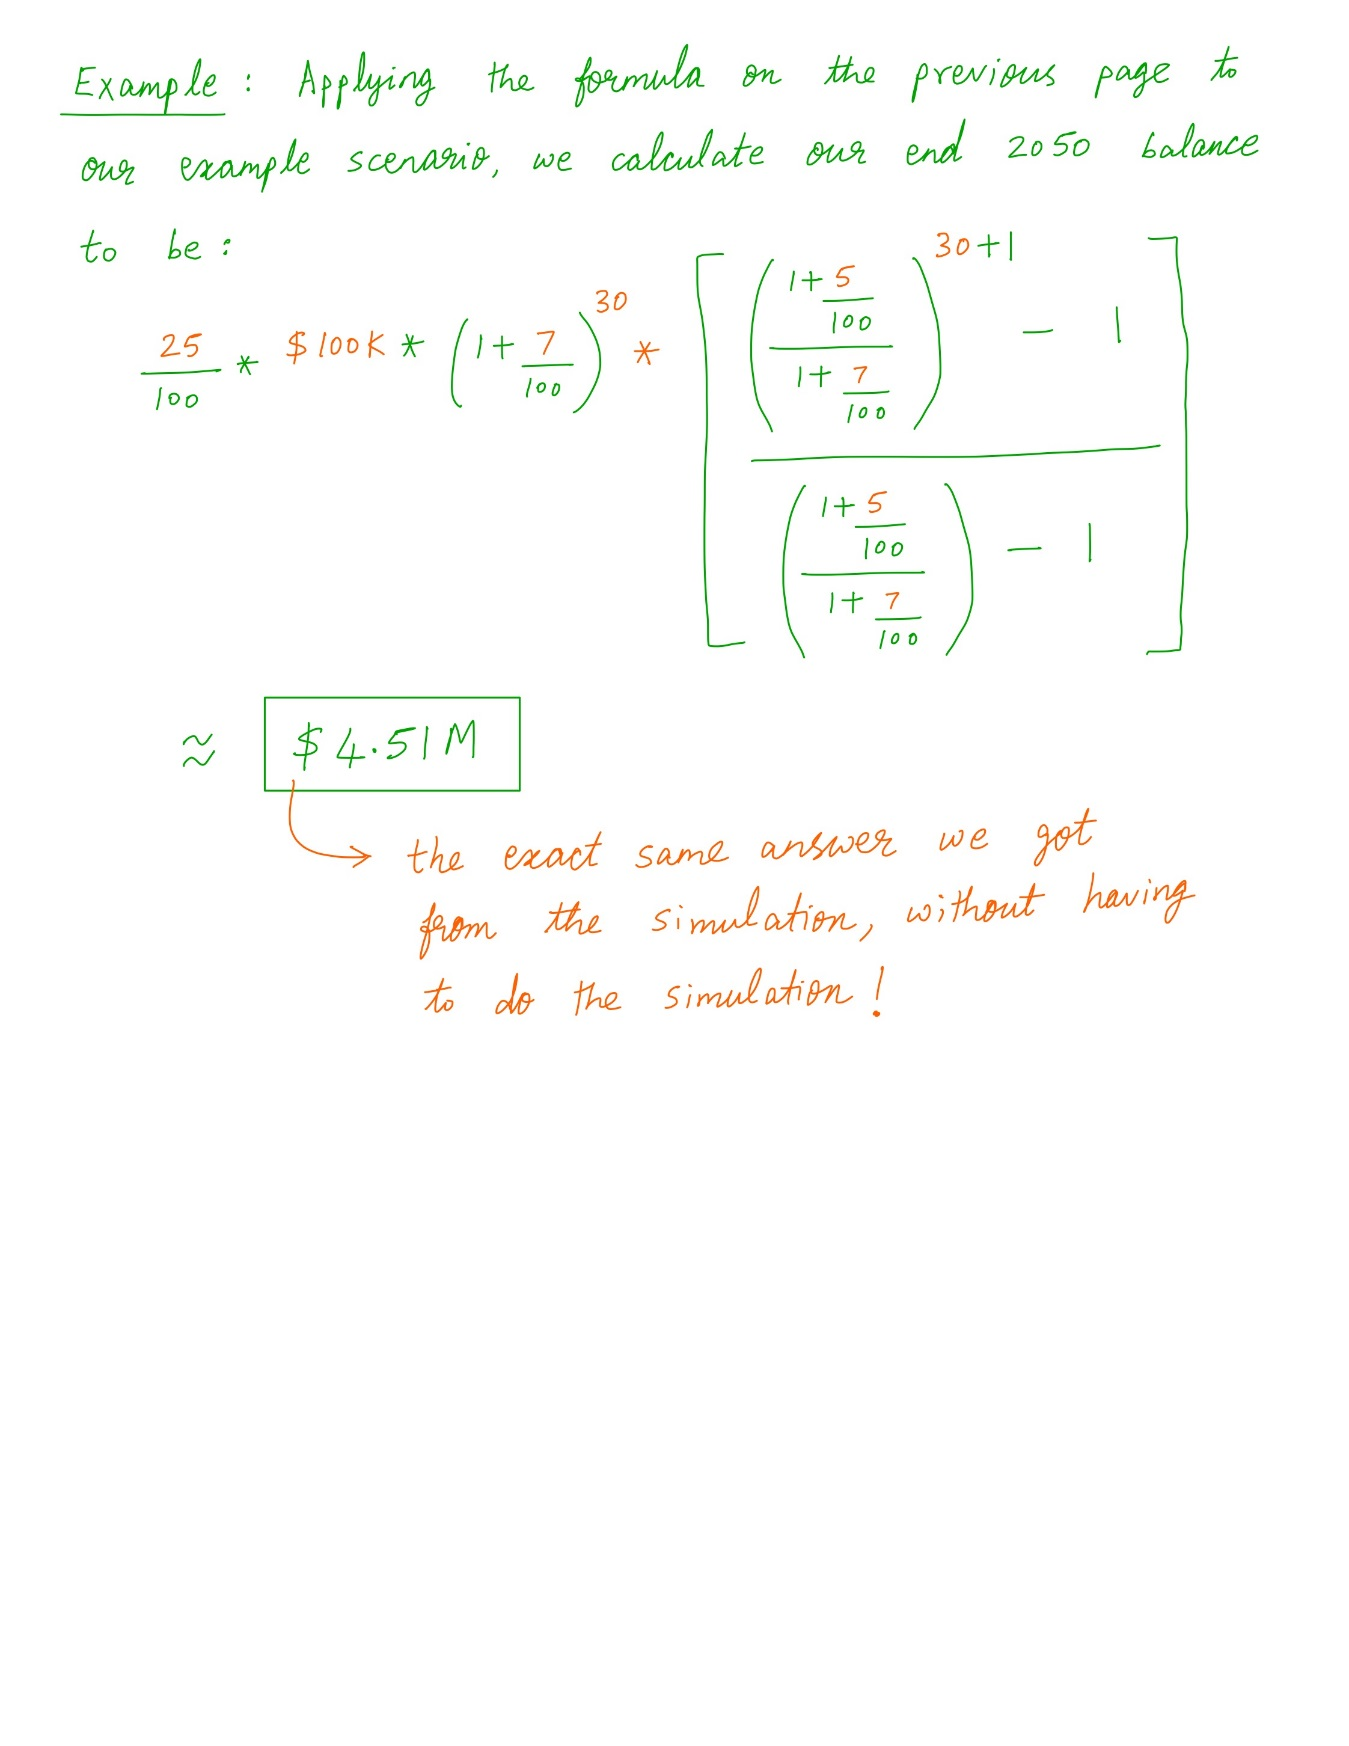 Example : Applying the formula on the previous page to
our example scenario, we calculate our end 2050 balance
to be :
25/100 * $100K * (1 + 7/100)^30 * [ ( ( (1 + 5/100) / (1 + 7/100) )^(30+1) - 1 ) / ( ( (1 + 5/100) / (1 + 7/100) ) - 1 ) ]
≈ $4.51M
the exact same answer we got
from the simulation, without having
to do the simulation!